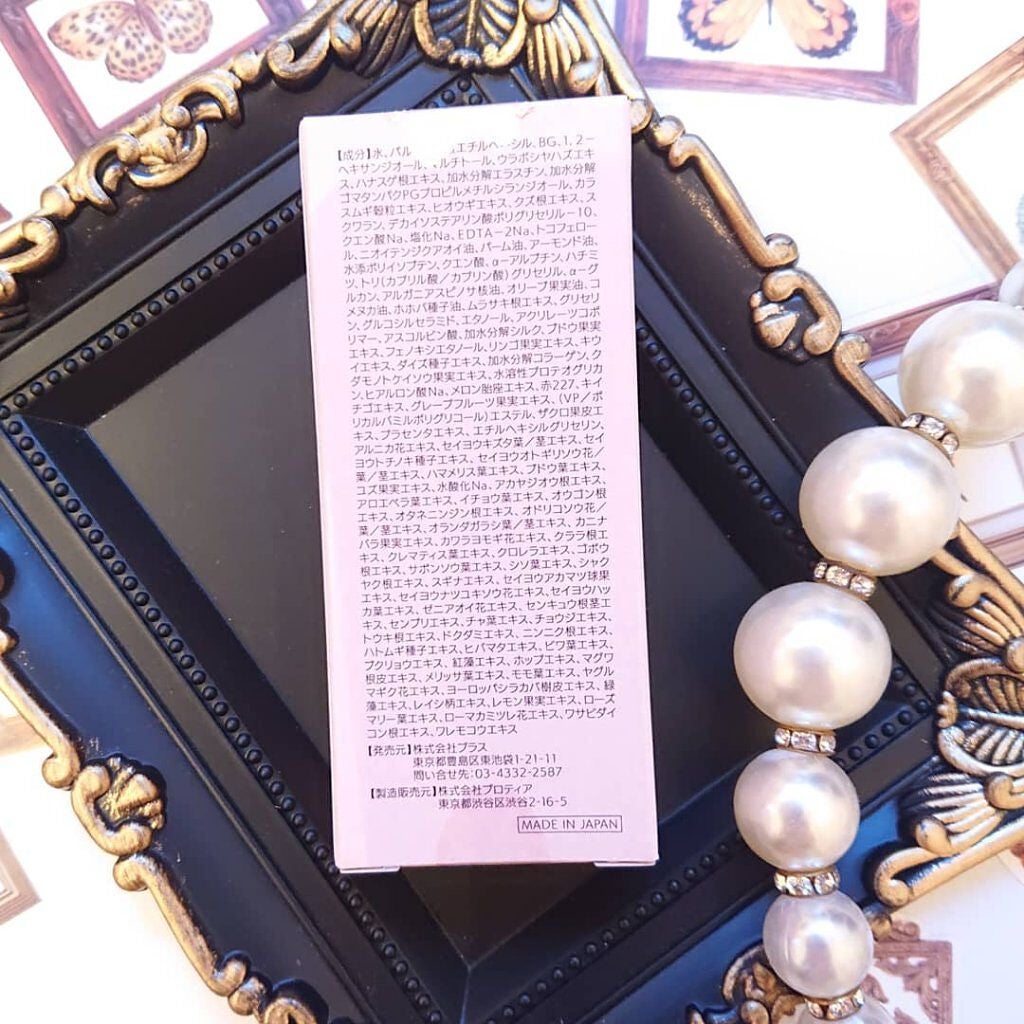 【成分】水、パル エチルヘ シル、BG、1,2-
ヘキサンジオール、 ルチトール、ウラボシヤハズエキ
ス、ハナスゲ根エキス、加水分解エラスチン、加水分解
ゴマタンパクPGプロピルメチルシランジオール、カラ
スムギ穀粒エキス、ヒオウギエキス、クズ根エキス、ス
クワラン、デカイソステアリン酸ポリグリセリル-10、
クエン酸Na、塩化Na、EDTA-2Na、トコフェロー
ル、ニオイテンジクアオイ油、パーム油、アーモンド油、
水添ポリイソブテン、クエン酸、α-アルブチン、ハチミ
ツ、トリ(カプリル酸/カプリン酸)グリセリル、α-グ
ルカン、アルガニアスピノサ核油、オリーブ果実油、コ
メヌカ油、ホホバ種子油、ムラサキ根エキス、グリセリ
ン、グルコシルセラミド、エタノール、アクリレーツコポ
リマー、アスコルビン酸、加水分解シルク、ブドウ果実
エキス、フェノキシエタノール、リンゴ果実エキス、キウ
イエキス、ダイズ種子エキス、加水分解コラーゲン、ク
ダモノトケイソウ果実エキス、水溶性プロテオグリカ
ン、ヒアルロン酸Na、メロン胎座エキス、赤227、キイ
チゴエキス、グレープフルーツ果実エキス、(VP/ポ
リカルバミルポリグリコール)エステル、ザクロ果皮エ
キス、プラセンタエキス、エチルヘキシルグリセリン、
アルニカ花エキス、セイヨウキズタ葉/茎エキス、セイ
ヨウトチノキ種子エキス、セイヨウオトギリソウ花/
葉/茎エキス、ハマメリス葉エキス、ブドウ葉エキス、
コズ果実エキス、水酸化Na、アカヤジオウ根エキス、
アロエベラ葉エキス、イチョウ葉エキス、オウゴン根
エキス、オタネニンジン根エキス、オドリコソウ花/
葉/茎エキス、オランダガラシ葉/茎エキス、カニナ
バラ果実エキス、カワラヨモギ花エキス、クララ根エ
キス、クレマティス葉エキス、クロレラエキス、ゴボウ
根エキス、サボンソウ葉エキス、シソ葉エキス、シャク
ヤク根エキス、スギナエキス、セイヨウアカマツ球果
エキス、セイヨウナツユキソウ花エキス、セイヨウハッ
カ葉エキス、ゼニアオイ花エキス、センキュウ根茎エ
キス、センブリエキス、チャ葉エキス、チョウジエキス、
トウキ根エキス、ドクダミエキス、ニンニク根エキス、
ハトムギ種子エキス、ヒバマタエキス、ビワ葉エキス、
ブクリョウエキス、紅藻エキス、ホップエキス、マグワ
根皮エキス、メリッサ葉エキス、モモ葉エキス、ヤグル
マギク花エキス、ヨーロッパシラカバ樹皮エキス、緑
藻エキス、レイシ柄エキス、レモン果実エキス、ローズ
マリー葉エキス、ローマカミツレ花エキス、ワサビダイ
コン根エキス、ワレモコウエキス
【発売元】株式会社プラス
東京都豊島区東池袋1-21-11
問い合せ先:03-4332-2587
【製造販売元】株式会社プロティア
東京都渋谷区渋谷2-16-5
MADE IN JAPAN